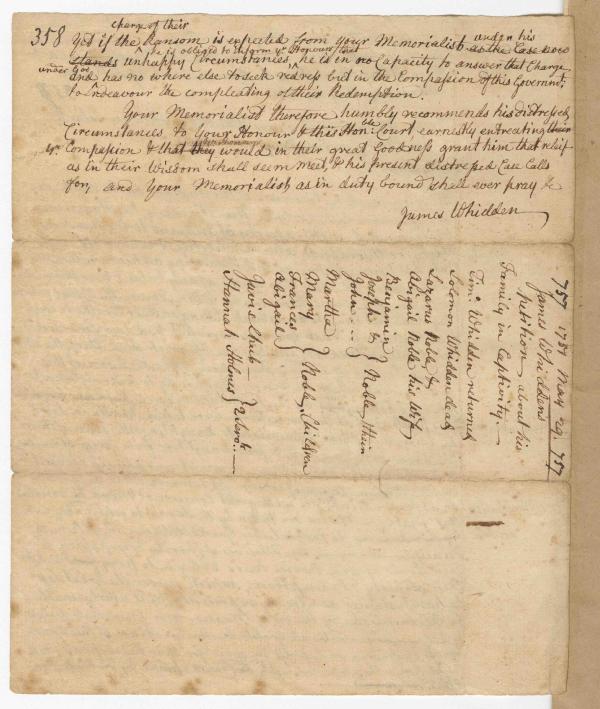 charge of their
358 Yet if the Ransom is expected from your Memorialist under his
as the Case now
stands unhappy Circumstances, he is obliged to inform yr Honours that he is in no Capacity to answer that Charge
and has no where else to seek redress but in the Compassion of this Governmt.
to Endeavour the compleating of their Redemption.
Your Memorialist therefore humbly recommends his distressed
Circumstances to Your Honour & this Honble. Court earnestly entreating their
yr. Compassion & that they would in their great Goodness grant him that relief
as in their Wisdom shall seem meet, & his present distressed Case Calls
for, and Your Memorialist as in duty bound shall ever pray &c
James Whidden
757 1757 May 29. 757
James Whiddens
petition about his
Family in Captivity.
Tim: Whidden returned
Solomon Whidden dead
Lazarus Noble &
Abigail Noble his Wife
Benjamin
Joseph &
John
Noble
Martha
Mary
Frances
Abigail
Noble, Children
Hannah Holmes